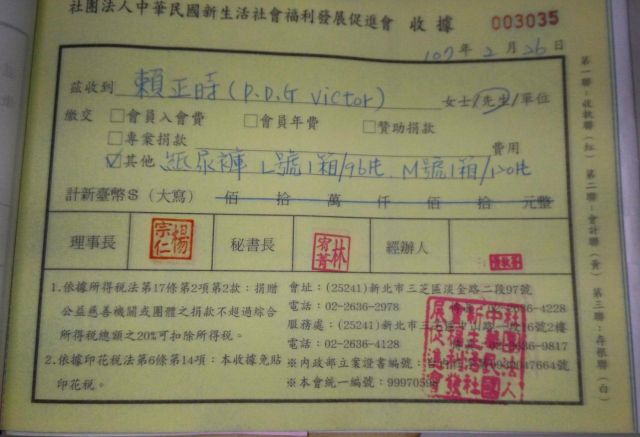 社團法人中華民國新生活社會福利發展促進會 收據 003035
107年2月26日
茲收到 賴正時(P.D.G Victor) 女士/先生/單位
繳交 □會員入會費 □會員年費 □贊助捐款
□專案捐款 費用
☑其他 紙尿褲 L號1箱/96片. M號1箱/120片
計新臺幣$(大寫) 佰 拾 萬 仟 佰 拾 元整
理事長 楊宗仁 秘書長 林宥菁 經辦人
1.依據所得稅法第17條第2項第2款:捐贈
公益慈善機關或團體之捐款不超過綜合
所得稅總額之20%可扣除所得稅。
2.依據印花稅法第6條第14項:本收據免貼
印花稅。
會址:(25241)新北市三芝區淡金路二段97號
電話:02-2636-2978 4228
服務處:(25241)新北市三芝區中山路一段16號2樓
電話:02-2636-4128 36-9817
※內政部立案證書編號: 0930047664號
※本會統一編號:99970598
社團法人中華民國新生活社會福利發展促進會
第一聯:收執聯(紅) 第二聯:會計聯(黃) 第三聯:存根聯(白)